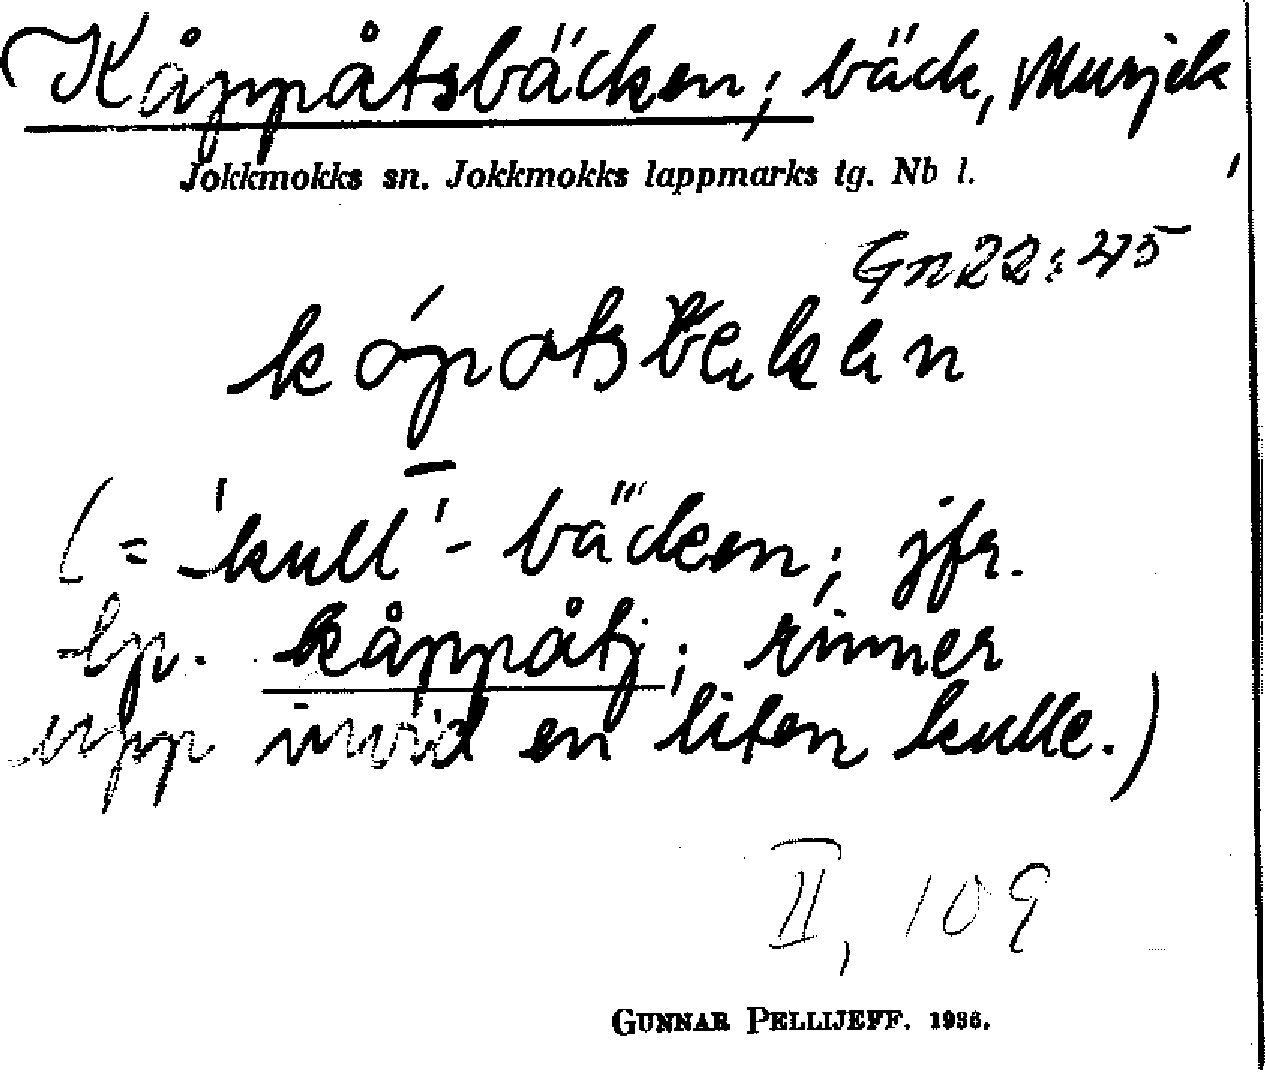 Kåppåtsbäcken; bäck, Murjek
Jokkmokks sn. Jokkmokks lappmarks tg. Nb l.
Gn 22:45
(= 'kull'-bäcken; jfr.
lp. kåppåtj; rinner
upp invid en liten kulle.)
II, 109
GUNNAR PELLIJEFF. 1936.